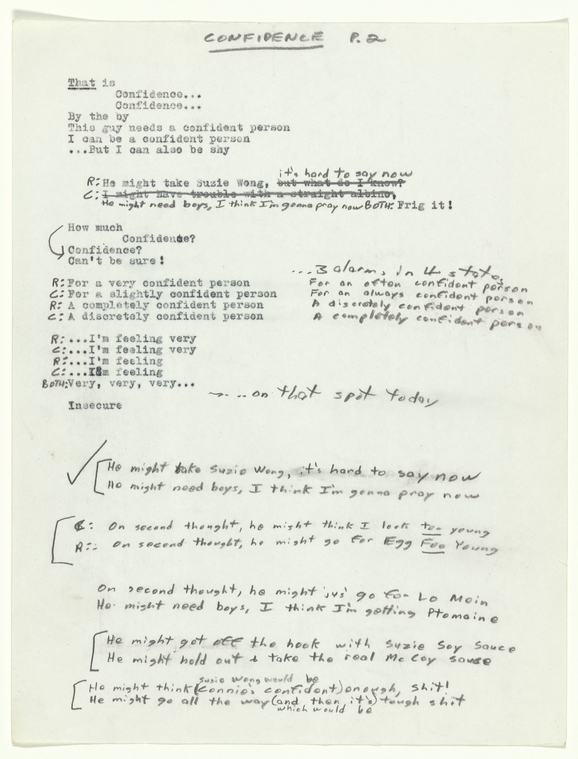 CONFIDENCE P. 2
That is
Confidence...
Confidence...
By the by
This guy needs a confident person
I can be a confident person
...But I can also be shy
it's hard to say now
R: He might take Suzie Wong, but what do I know?
C: I might have trouble with a straight albino,
He might need boys, I think I'm gonna pray now BOTH: Frig it!
How much
Confidence?
Confidence?
Can't be sure!
...3 alarms in 4 states
R: For a very confident person For an often confident person
C: For a slightly confident person For an always confident person
R: A completely confident person A discretely confident person
C: A discretely confident person A completely confident person
R: ...I'm feeling very
C: ...I'm feeling very
R: ...I'm feeling
C: ...I'm feeling
BOTH: Very, very, very...
...on that spot today
Insecure
He might take Suzie Wong, it's hard to say now
He might need boys, I think I'm gonna pray now
C: On second thought, he might think I look too young
R: On second thought, he might go for Egg Foo Young
On second thought, he might jus' go for Lo Mein
He might need boys, I think I'm getting Ptomaine
He might get off the hook with Suzie Soy Sauce
He might hold out & take the real McCoy sauce
Suzie Wong would be
He might think (Connie's confident) enough, shit!
He might go all the way (and then it's) tough shit
which would be